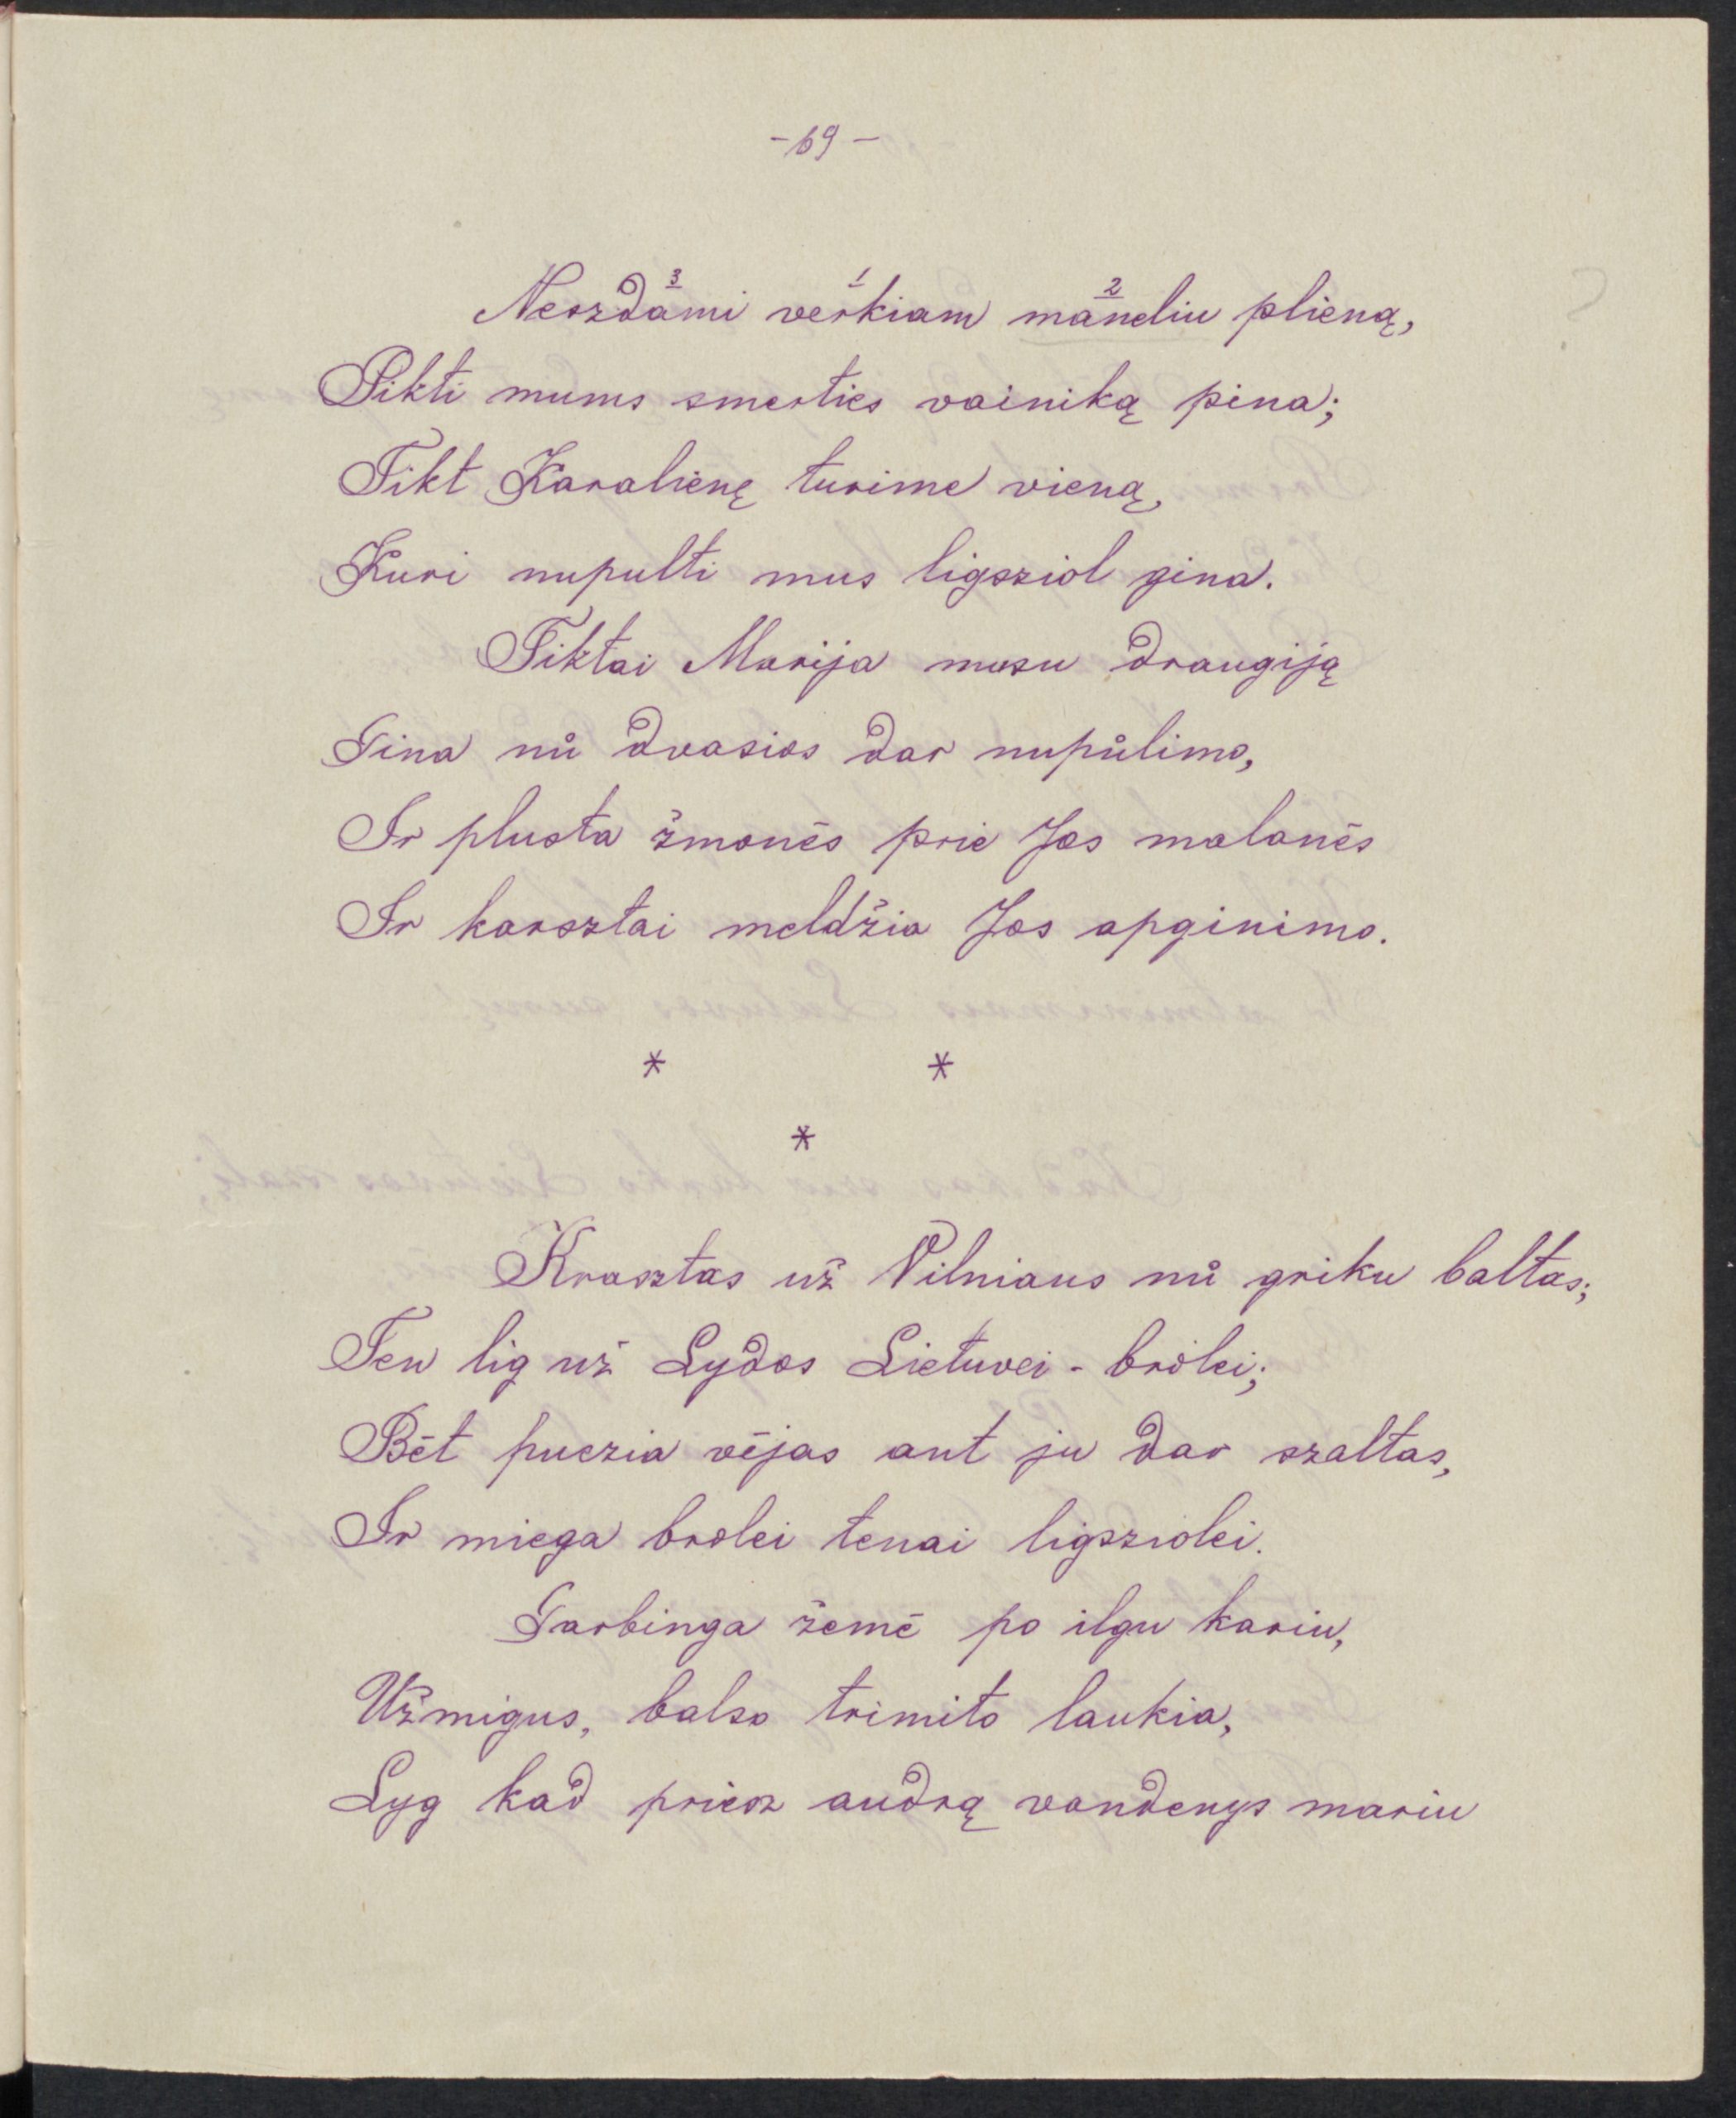 -69-
Neszdami verkiam mandiu plieną,
Pikti mums smerties vainiką pina;
Tikt Karalienę turime vieną,
Kuri nupulti mus ligsziol gina.
Tiktai Marija musu draugiją
Gina nů dvasios dar nupůlimo,
Ir plusta žmonės prie Jos malonės
Ir karsztai meldžia Jos apginimo.
* *
*
Krasztas už Vilniaus nů griku baltas;
Ten lig už Lydos Lietuvei - brolei;
Bėt puczia vėjas ant ju dar szaltas,
Ir miega brolei tenai ligsziolei.
Garbinga žemė po ilgu kariu,
Užmigus, balso trimito laukia,
Lyg kad priesz audrą vandenys mariu